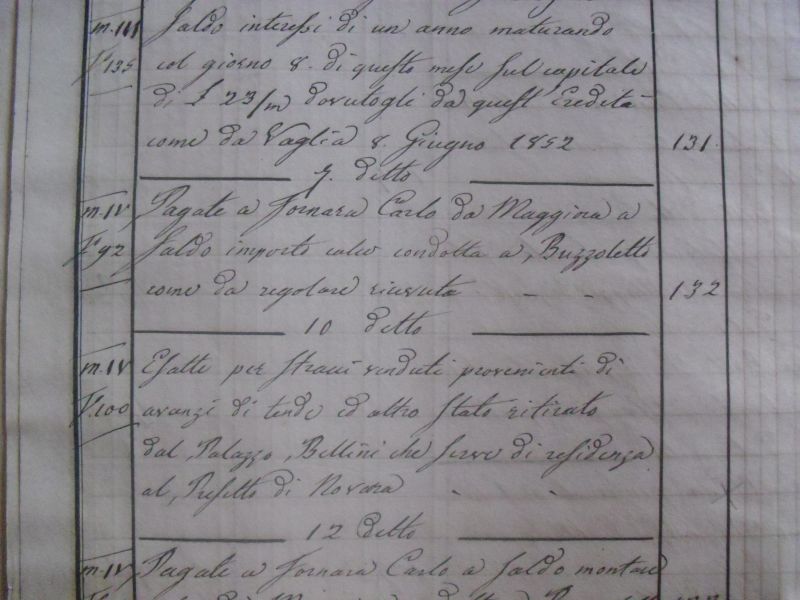 m. III Saldo interessi di un anno maturando
F. 135 col giorno 8. di questo mese sul capitale
di £ 23/m dovutogli da quest'Eredità
come da Vaglia 8. Giugno 1852 131.
9. detto
m. IV Pagate a Fornara Carlo da Maggiora a
F. 92 Saldo importo calce condotta a Buzzoletto
come da regolare ricevuta - - 132
10 detto
m. IV Esatte per stracci venduti provenienti di
F. 100 avanzi di tende ed altro stato ritirato
dal Palazzo Bellini che serve di residenza
al Prefetto di Novara
12 Detto
m. IV Pagate a Fornara Carlo a Saldo montare